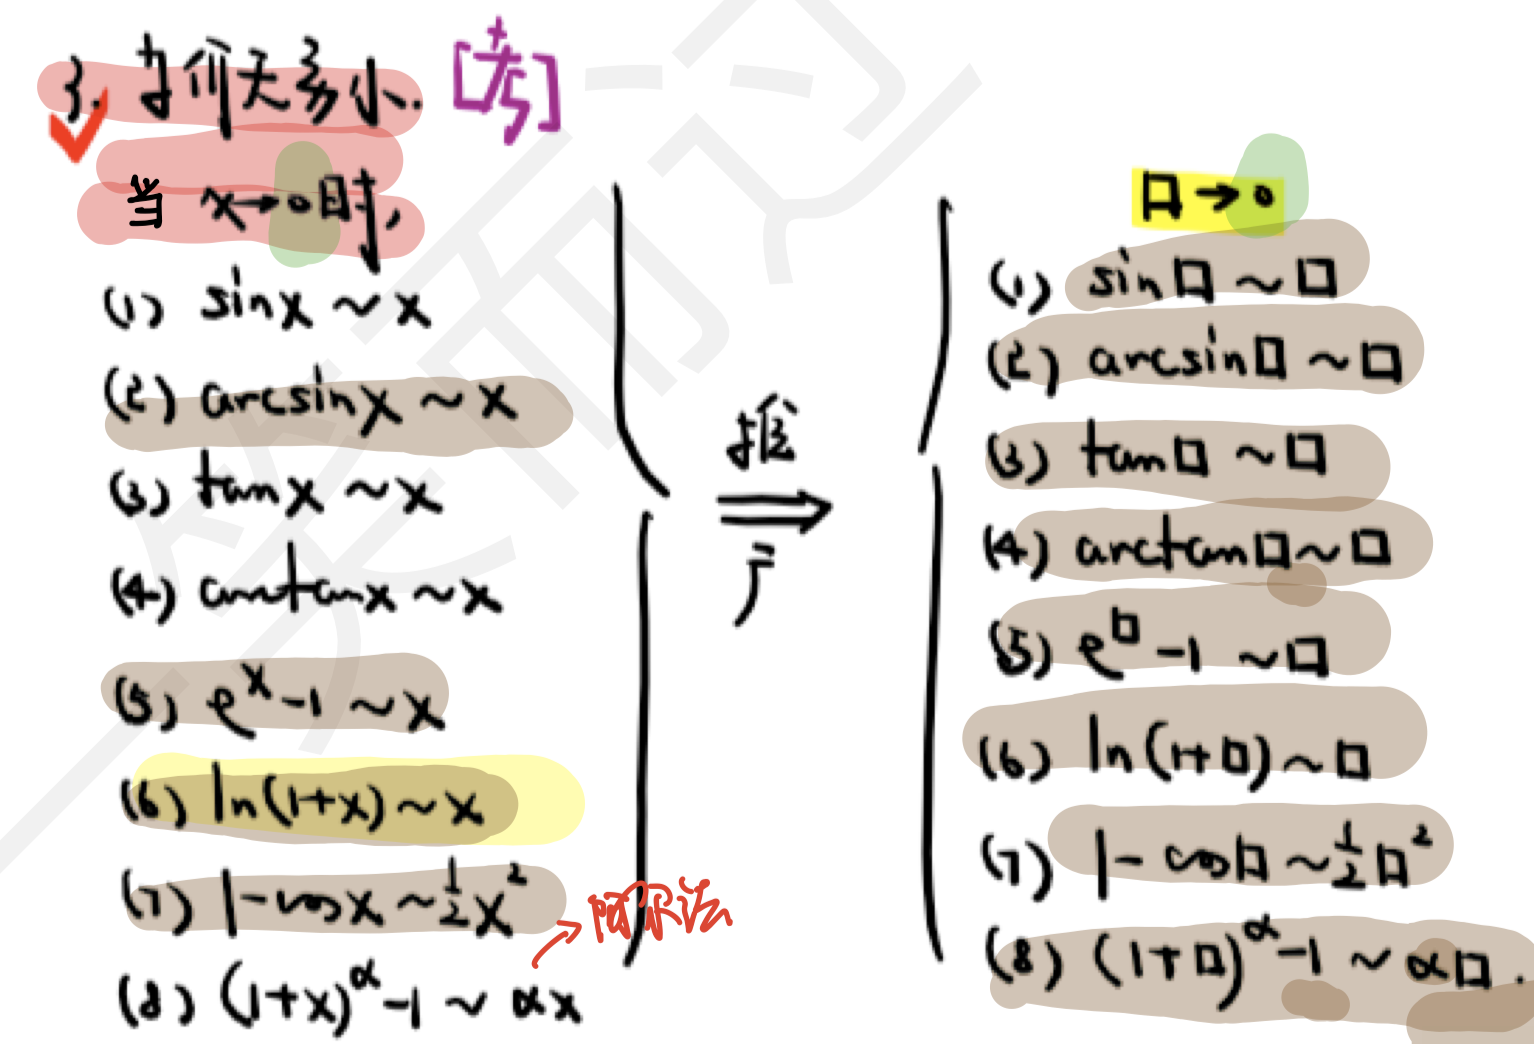 3. 等价无穷小. [考]
当 x→0时,
(1) sinx ~ x
(2) arcsinx ~ x
(3) tanx ~ x
(4) arctanx ~ x
(5) e^x-1 ~ x
(6) ln(1+x) ~ x
(7) 1-cosx ~ 1/2 x²
(8) (1+x)^α-1 ~ αx
推
⇒
广
□→0
(1) sin□ ~ □
(2) arcsin□ ~ □
(3) tan□ ~ □
(4) arctan□ ~ □
(5) e^□-1 ~ □
(6) ln(1+□) ~ □
(7) 1-cos□ ~ 1/2 □²
(8) (1+□)^α-1 ~ α□.
一笑而过